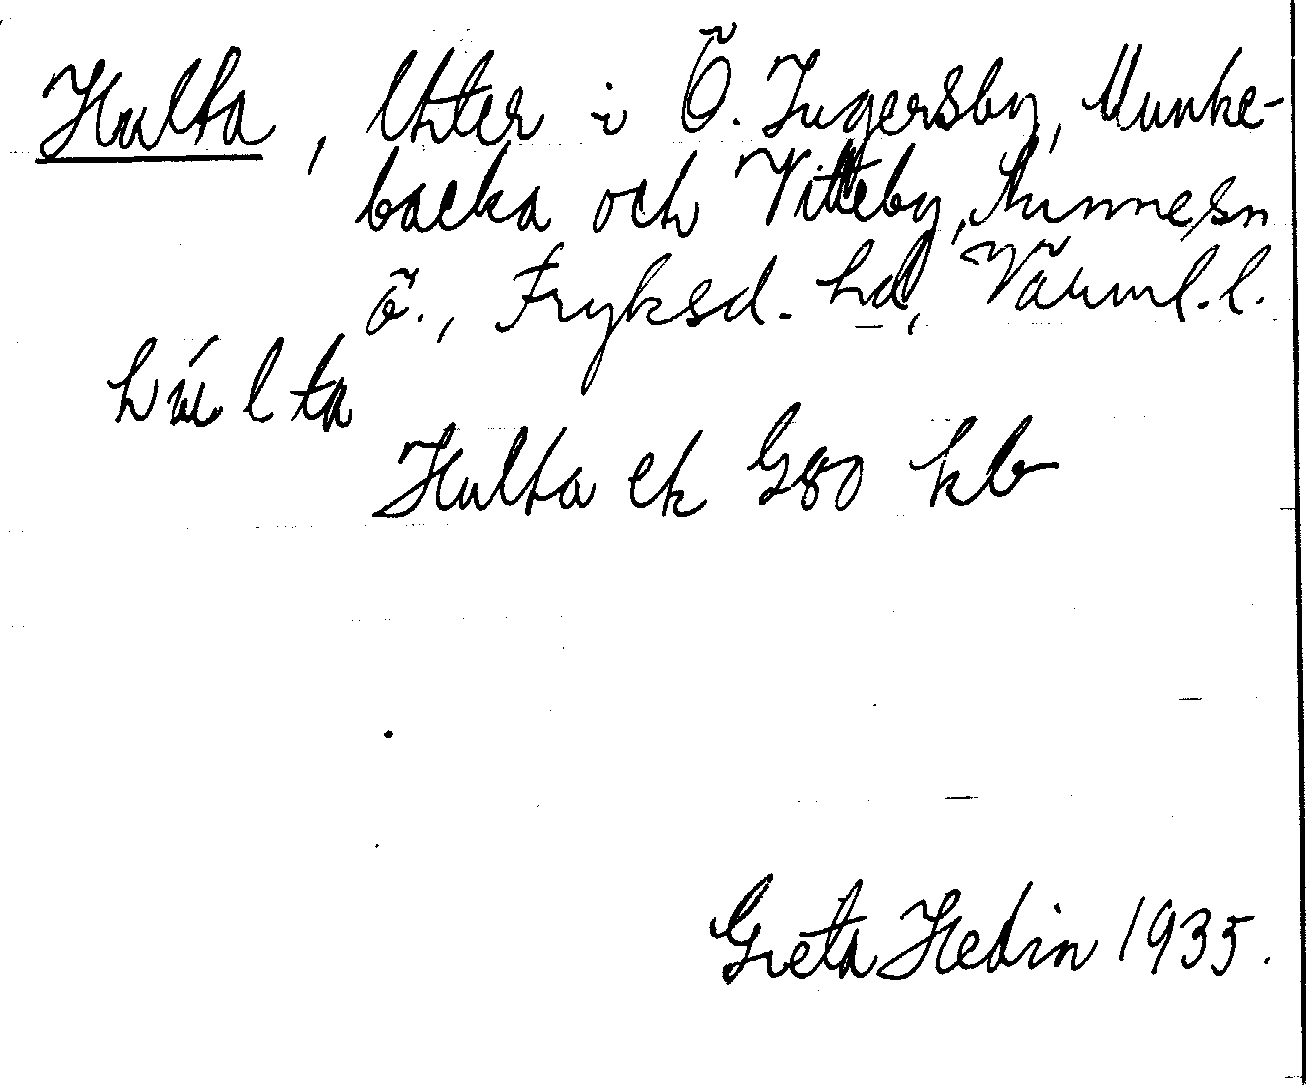 Hulta, Uhter i Ö. Ingersby, Munke-
backa och Vitteby, Sunne sn
ö., Fryksd. hd, Värml. l.
húlta
Hulta ek G80 kb
Greta Hedin 1935.